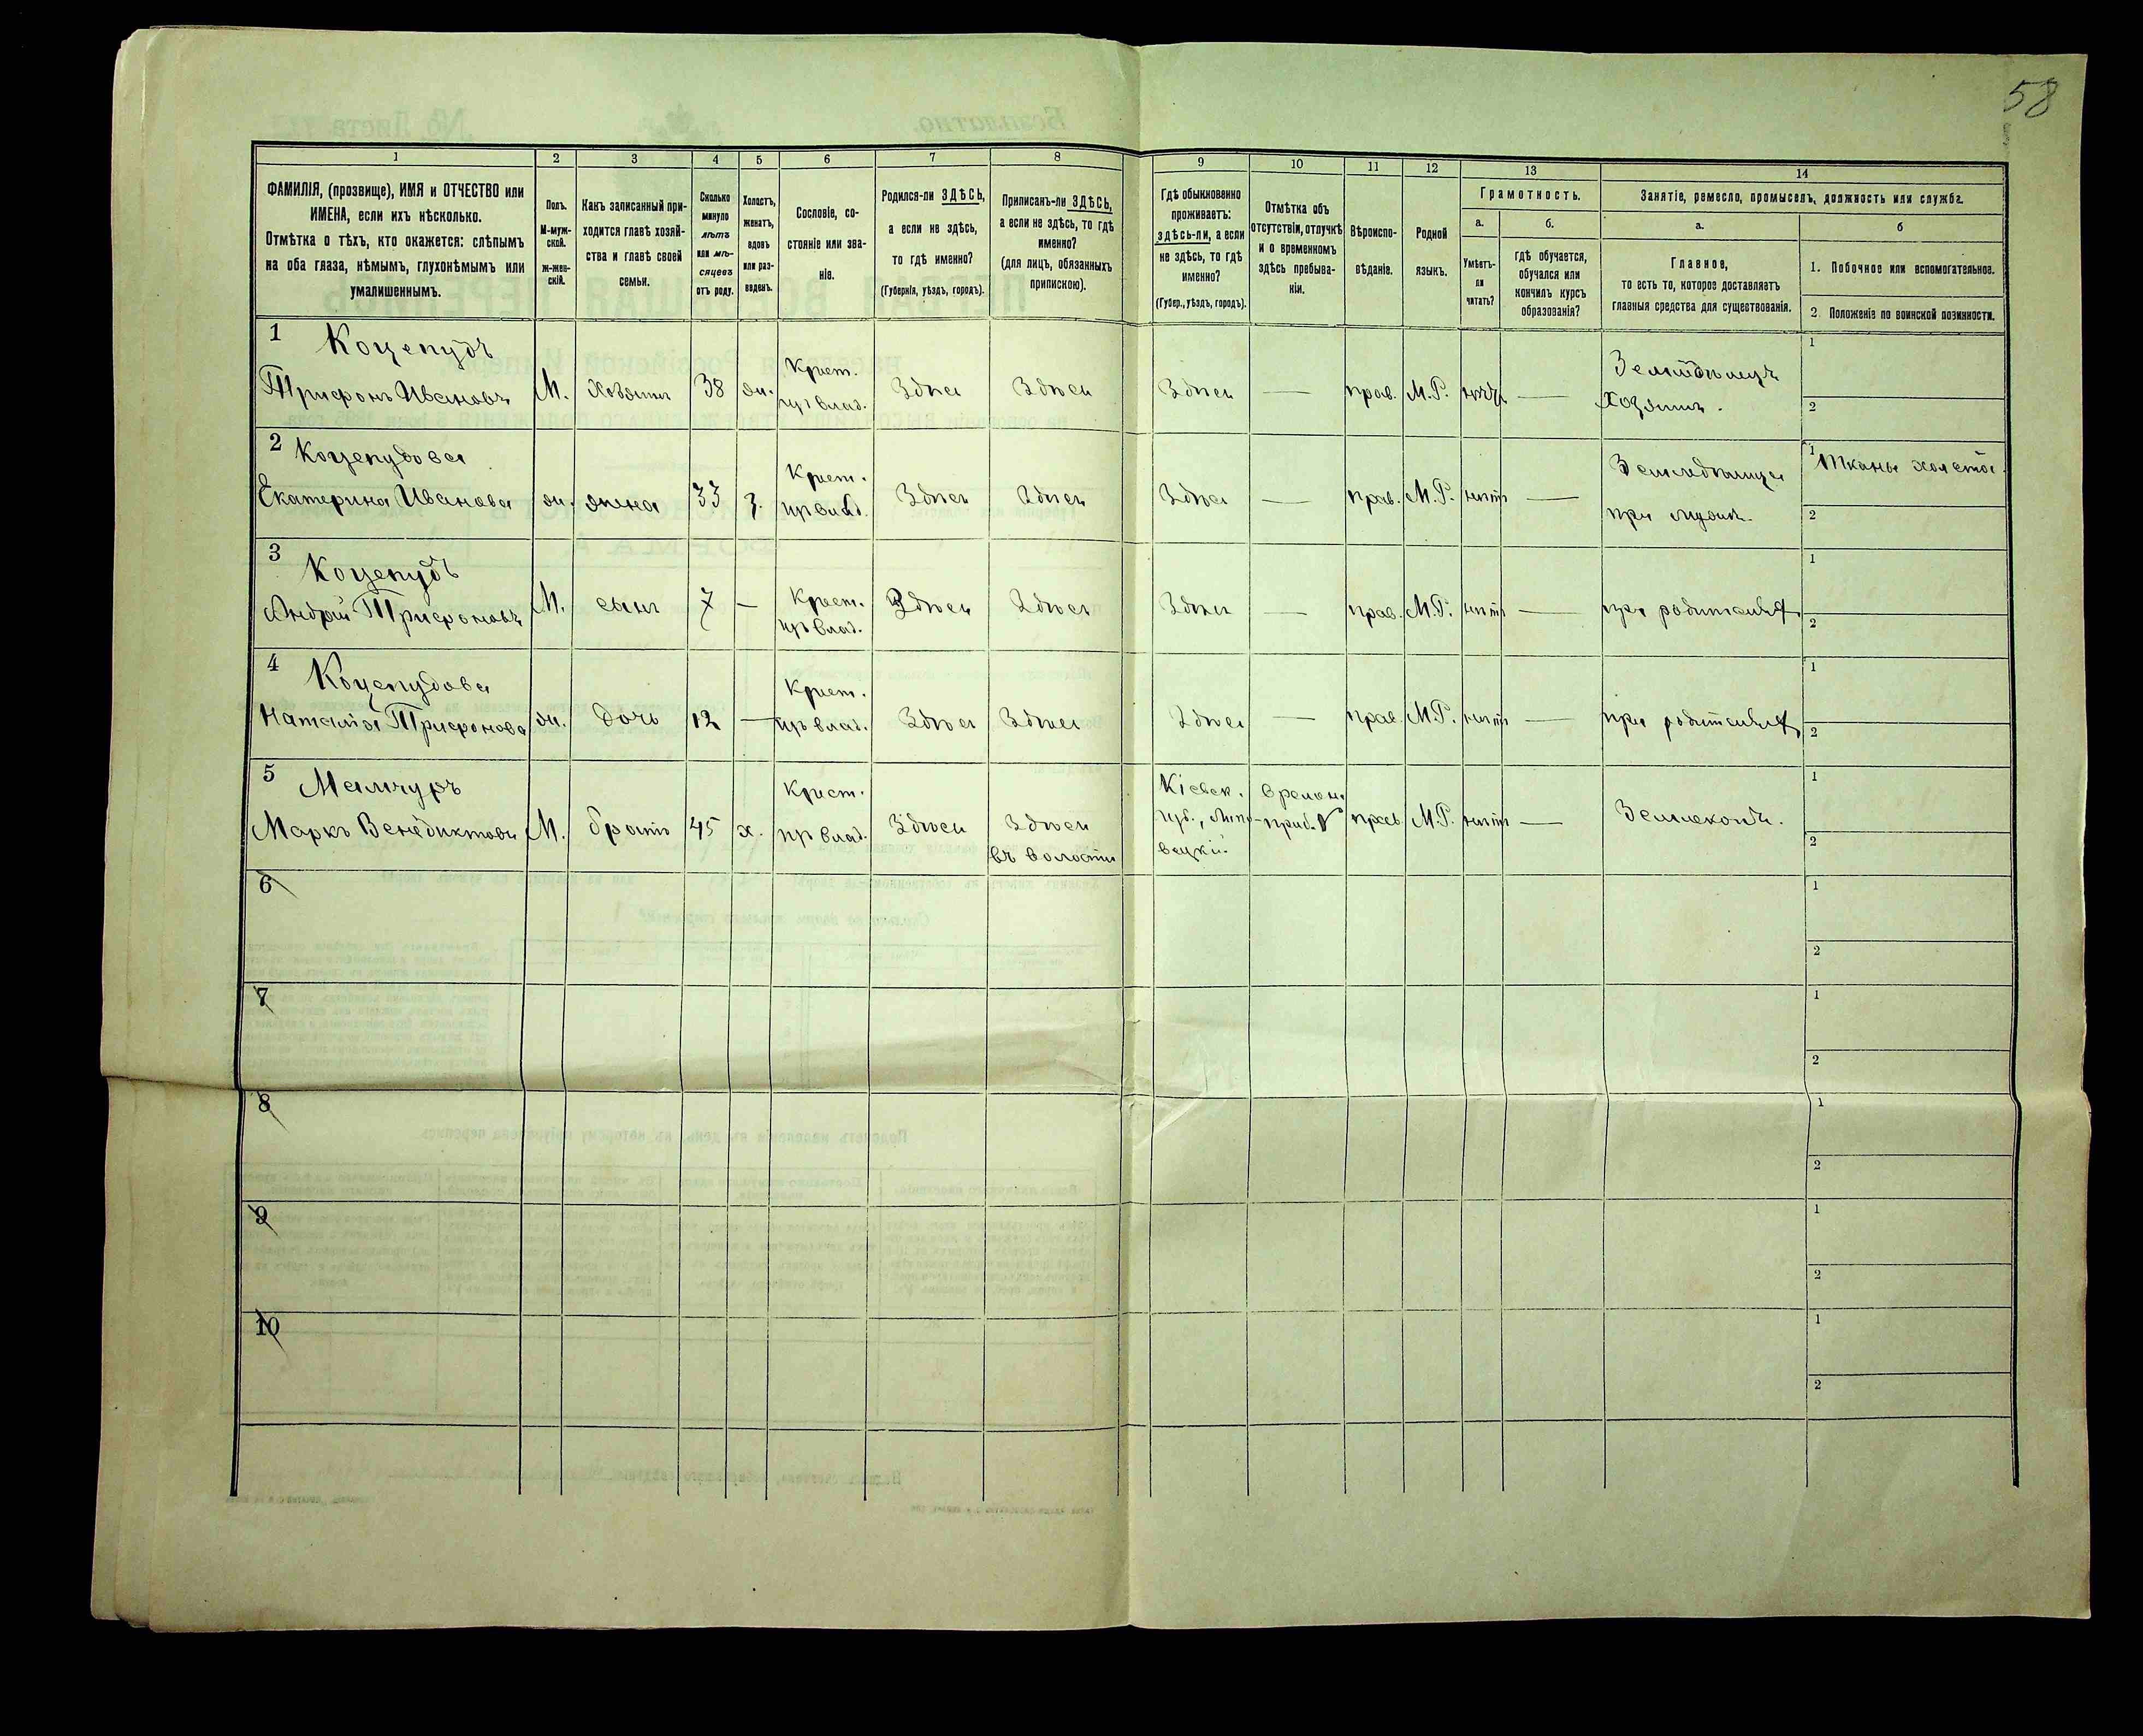 58
1
2
3
4
5
6
7
8
9
10
11
12
13
14
ФАМИЛІЯ, (прозвище), ИМЯ и ОТЧЕСТВО или
ИМЕНА, если ихъ нѣсколько.
Отмѣтка о тѣхъ, кто окажется: слѣпымъ
на оба глаза, нѣмымъ, глухонѣмымъ или
умалишеннымъ.
Полъ.
М-муж-
ской.
ж-жен-
скій.
Какъ записанный при-
ходится главѣ хозяй-
ства и главѣ своей
семьи.
Сколько
минуло
лѣтъ
или мѣ-
сяцевъ
отъ роду.
Холостъ,
женатъ,
вдовъ
или раз-
веденъ.
Сословіе, со-
стояніе или зва-
ніе.
Родился-ли ЗДѢСЬ,
а если не здѣсь,
то гдѣ именно?
(Губернія, уѣздъ, городъ).
Приписанъ-ли ЗДѢСЬ,
а если не здѣсь, то гдѣ
именно?
(для лицъ, обязанныхъ
припискою).
Гдѣ обыкновенно
проживаетъ:
здѣсь-ли, а если
не здѣсь, то гдѣ
именно?
(Губер., уѣздъ, городъ).
Отмѣтка объ
отсутствіи, отлучкѣ
и о временномъ
здѣсь пребыва-
ніи.
Вѣроиспо-
вѣданіе.
Родной
языкъ.
Грамотность.
а.
Умѣетъ-
ли
читать?
б.
гдѣ обучается,
обучался или
кончилъ курсъ
образованія?
Занятіе, ремесло, промыселъ, должность или служба.
а.
Главное,
то есть то, которое доставляетъ
главныя средства для существованія.
б
1. Побочное или вспомогательное.
2. Положеніе по воинской повинности.
1 Коцепудъ
Трифонъ Ивановъ М. Хозяинъ 38 ж. Крест. Здѣсь Здѣсь Здѣсь — прав. М.Р. — Земледѣлецъ
Хозяинъ.
1
2
2 Коцепудова
Екатерина Иванова ж. жена 33 з. Крест. Здѣсь Здѣсь Здѣсь — прав. М.Р. нѣтъ — Земледѣлица
при мужѣ.
1 Тканье холста.
2
3 Коцепудъ
Андрей Трифоновъ М. сынъ 7 — Крест. Здѣсь Здѣсь Здѣсь — прав. М.Р. нѣтъ — при родителяхъ
1
2
4 Коцепудова
Наталія Трифонова ж. дочь 12 — Крест. Здѣсь Здѣсь Здѣсь — прав. М.Р. нѣтъ — при родителяхъ
1
2
5
Маркъ Венедиктовъ М. братъ 45 х. Крест. Здѣсь Здѣсь
въ волости
Кіевск.
губ., Липо-
вецкій.
времен.
прав. М.Р. нѣтъ — Землекопъ.
1
2
6
1
2
7
1
2
8
1
2
9
1
2
10
1
2